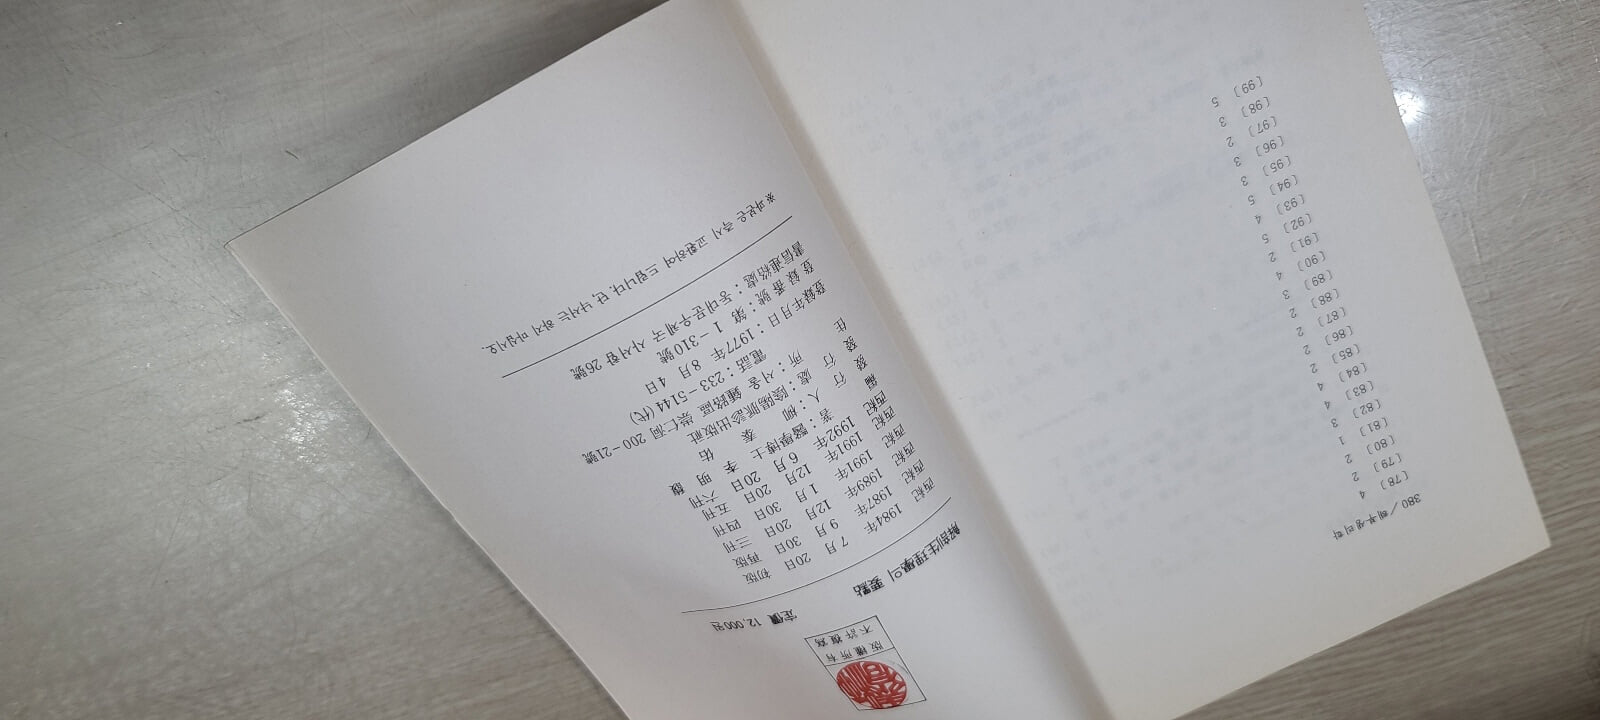 380 / 해부생리학
〔78〕 4
〔79〕 2
〔80〕 2
〔81〕 1
〔82〕 3
〔83〕 4
〔84〕 4
〔85〕 2
〔86〕 2
〔87〕 2
〔88〕 2
〔89〕 3
〔90〕 4
〔91〕 2
〔92〕 5
〔93〕 4
〔94〕 5
〔95〕 3
〔96〕 3
〔97〕 2
〔98〕 3
〔99〕 5
版權所有
不許複寫
解剖生理學의 要點
定價 12,000원
西紀 1984年 7月 20日 初版
西紀 1987年 9月 30日 再版
西紀 1989年 12月 20日 三刊
西紀 1991年 1月 30日 四刊
西紀 1991年 12月 20日 五刊
西紀 1992年 6月 20日 六刊
編著 : 醫學博士 李明馥
發行人 : 柳泰佑
發行處 : 陰陽脈診出版社
住所 : 서울 鍾路區 崇仁洞 200－21號
電話 : 233－5144(代)
登錄年月日 : 1977年 8月 4日
登錄番號 : 第 1－310號
書信連絡處 : 동대문우체국 사서함 26號
※파본은 즉시 교환하여 드립니다. 단, 낙서는 하지 마십시오.